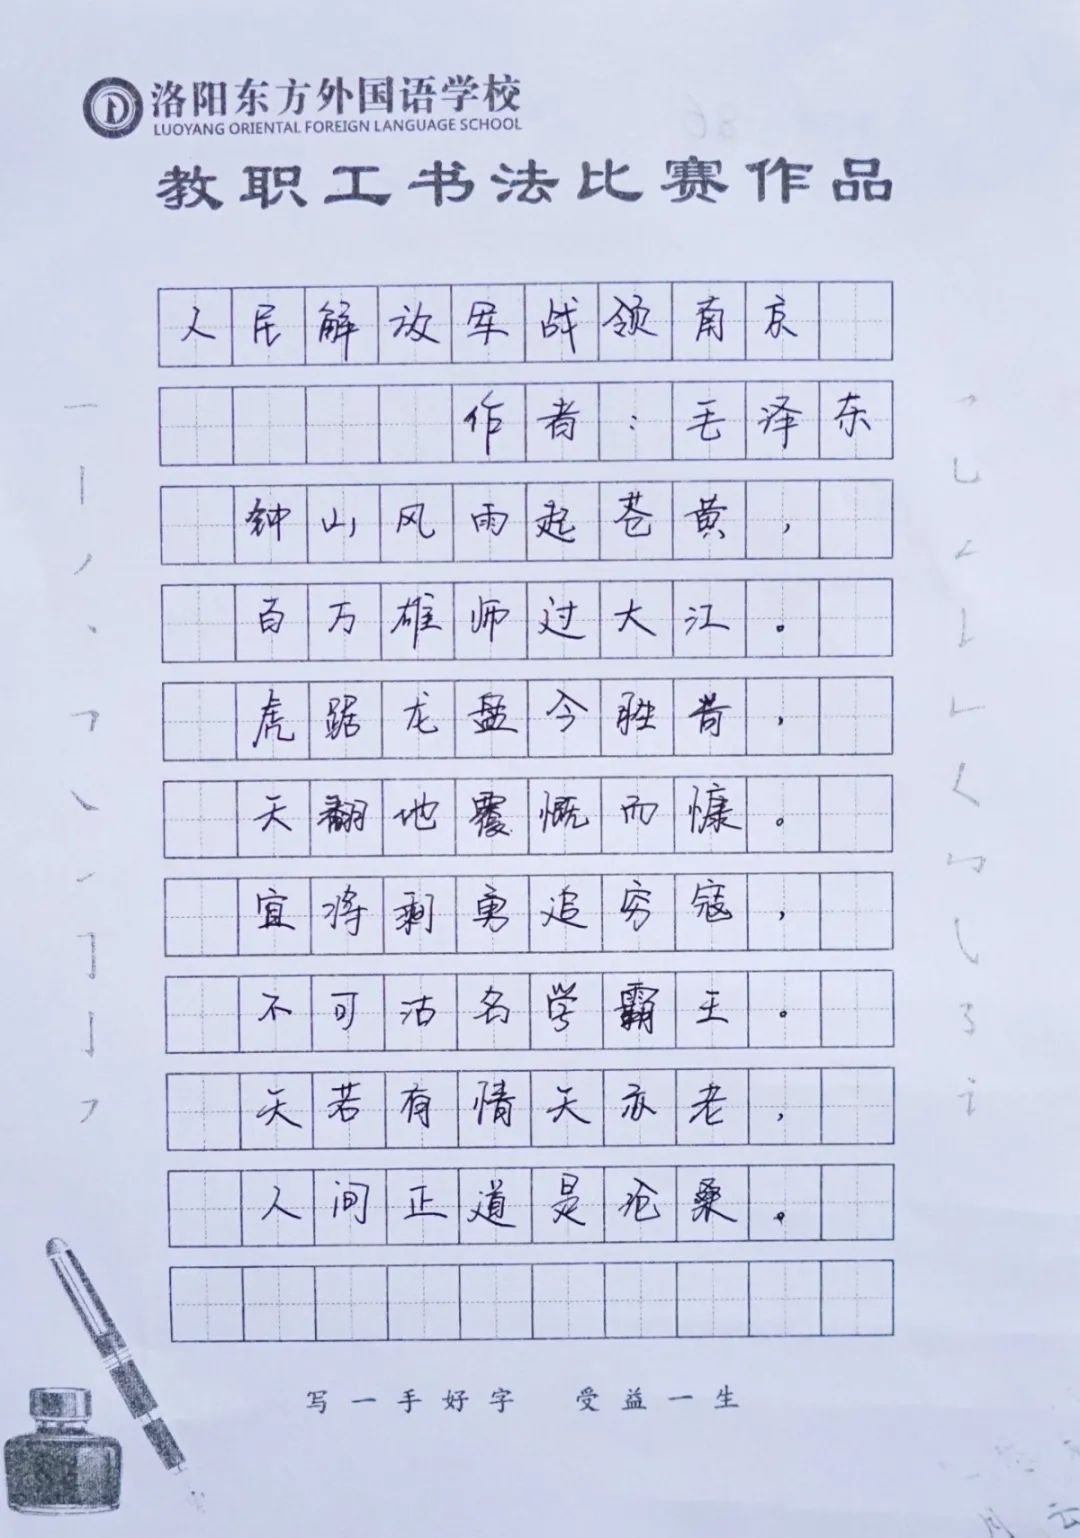 洛阳东方外国语学校
LUOYANG ORIENTAL FOREIGN LANGUAGE SCHOOL
教职工书法比赛作品
人民解放军战领南京
作者：毛泽东
钟山风雨起苍黄，
百万雄师过大江。
虎踞龙盘今胜昔，
天翻地覆慨而慷。
宜将剩勇追穷寇，
不可沽名学霸王。
天若有情天亦老，
人间正道是沧桑。
写一手好字 受益一生